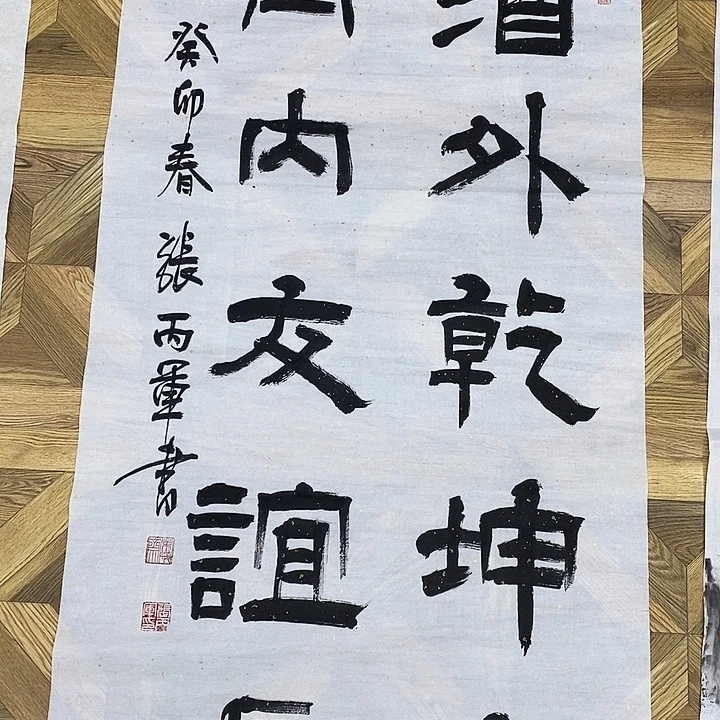 外乾坤
内友誼
癸卯春張丙軍書